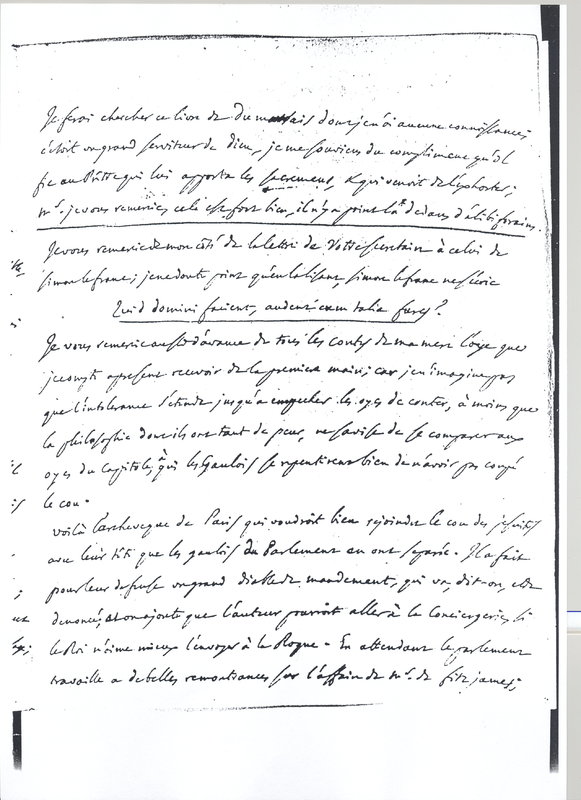 Je ferai chercher ce livre de Dumarsais dont je n'ai aucune connoissance;
c'étoit un grand serviteur de Dieu, je me souviens du compliment qu'il
fit au Prêtre qui lui apporta les sacremens, & qui venoit de l'exhorter;
mr. je vous remercie, cela est fort bien, il n'y a point là dedans d'alibiforains.
Je vous remercie de mon côté de la lettre de votre secretaire à celui de
Simon le franc; je ne doute point qu'en la lisant, Simon le franc ne s'écrie
Quid domini facient, audent cum talia fures?
Je vous remercie aussi d'avance de tous les contes de ma mere l'oye que
je compte à present recevoir de la premiere main; car je n'imagine pas
que l'intolerance s'etende jusqu'a empecher les oyes de conter, à moins que
la philosophie dont ils ont tant de peur, ne s'avise de se comparer aux
oyes du capitole, à qui les Gaulois se repentirent bien de n'avoir pas coupé
le cou.
voilà l'archeveque de Paris qui voudroit bien rejoindre le cou des jesuites
avec leur tête que les gaulois du Parlement en ont separée. Il a fait
pour leur defense un grand diable de mandement, qui va, dit-on, etre
denoncé, et on ajoute que l'auteur pourroit aller à la Conciergerie, si
le Roi n'aime mieux l'envoyer à la Roque. En attendant le parlement
travaille a de belles remontrances sur l'affaire de mr. de fitzjames;